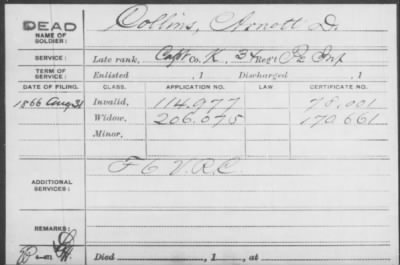 DEAD
NAME OF SOLDIER: Collins, Arnott D.
SERVICE: Late rank, Capt Co. K, 34 Reg't Pa Inf
TERM OF SERVICE: Enlisted , 1 Discharged , 1
DATE OF FILING. CLASS. APPLICATION NO. LAW CERTIFICATE NO.
1866 Aug 31 Invalid, 114.977 78.001
Widow, 206.675 170661
Minor,
ADDITIONAL SERVICES: F 6 V.R.C.
REMARKS:
Died , 1 , at